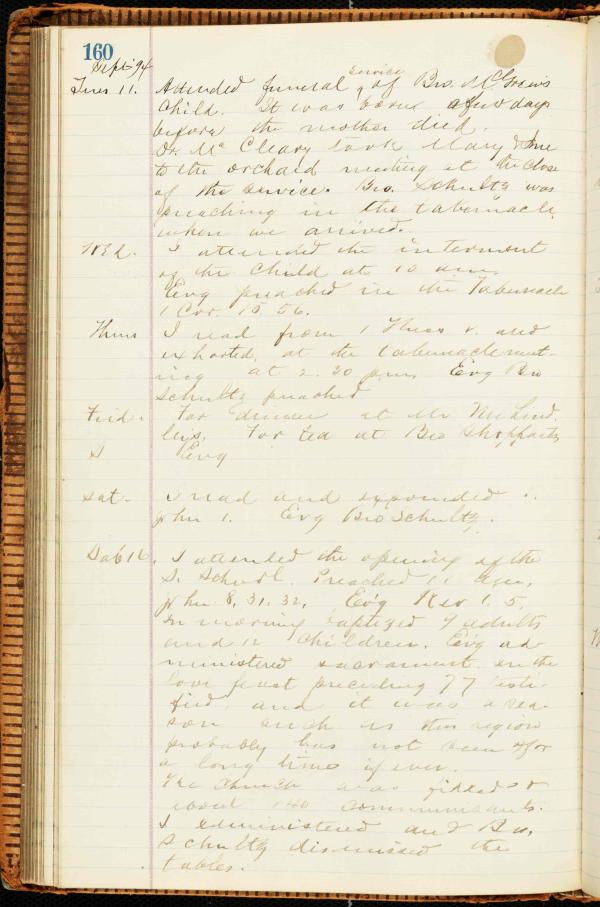 160
Sept 94
Tues 11. Attended funeral service of Bro. McGraw's
child. It was borne a few days
before the mother died.
Dr. McCleary took Mary & me
to the orchard meeting at the close
of the service. Bro. Schultz was
preaching in the tabernacle
when we arrived.
Wed. I attended the interment
of the child at 10 am.
Evg preached in the Tabernacle
1 Cor. 15. 56.
Thurs I read from 1 Thess v. and
exhorted, at the tabernacle meet-
ing at 2.30 p.m. Evg Bro
Schultz preached
Frid. For dinner at Mr
For tea at Bro
S Evg
Sat. I read and expounded
John 1. Evg Bro Schultz.
Sab 16. I attended the opening of the
S. School. Preached 11 am.
John 8, 31, 32. Ev'g Rev 1. 5.
In morning baptized 9 adults
and 12 children. Ev'g ad-
ministered sacrament. In the
love feast preceding 77 testi-
fied, and it was a sea-
son such as this region
probably has not seen for
a long time if ever.
The church was filled &
140 communicants.
I administered and Bro.
Schultz dismissed the
tables.